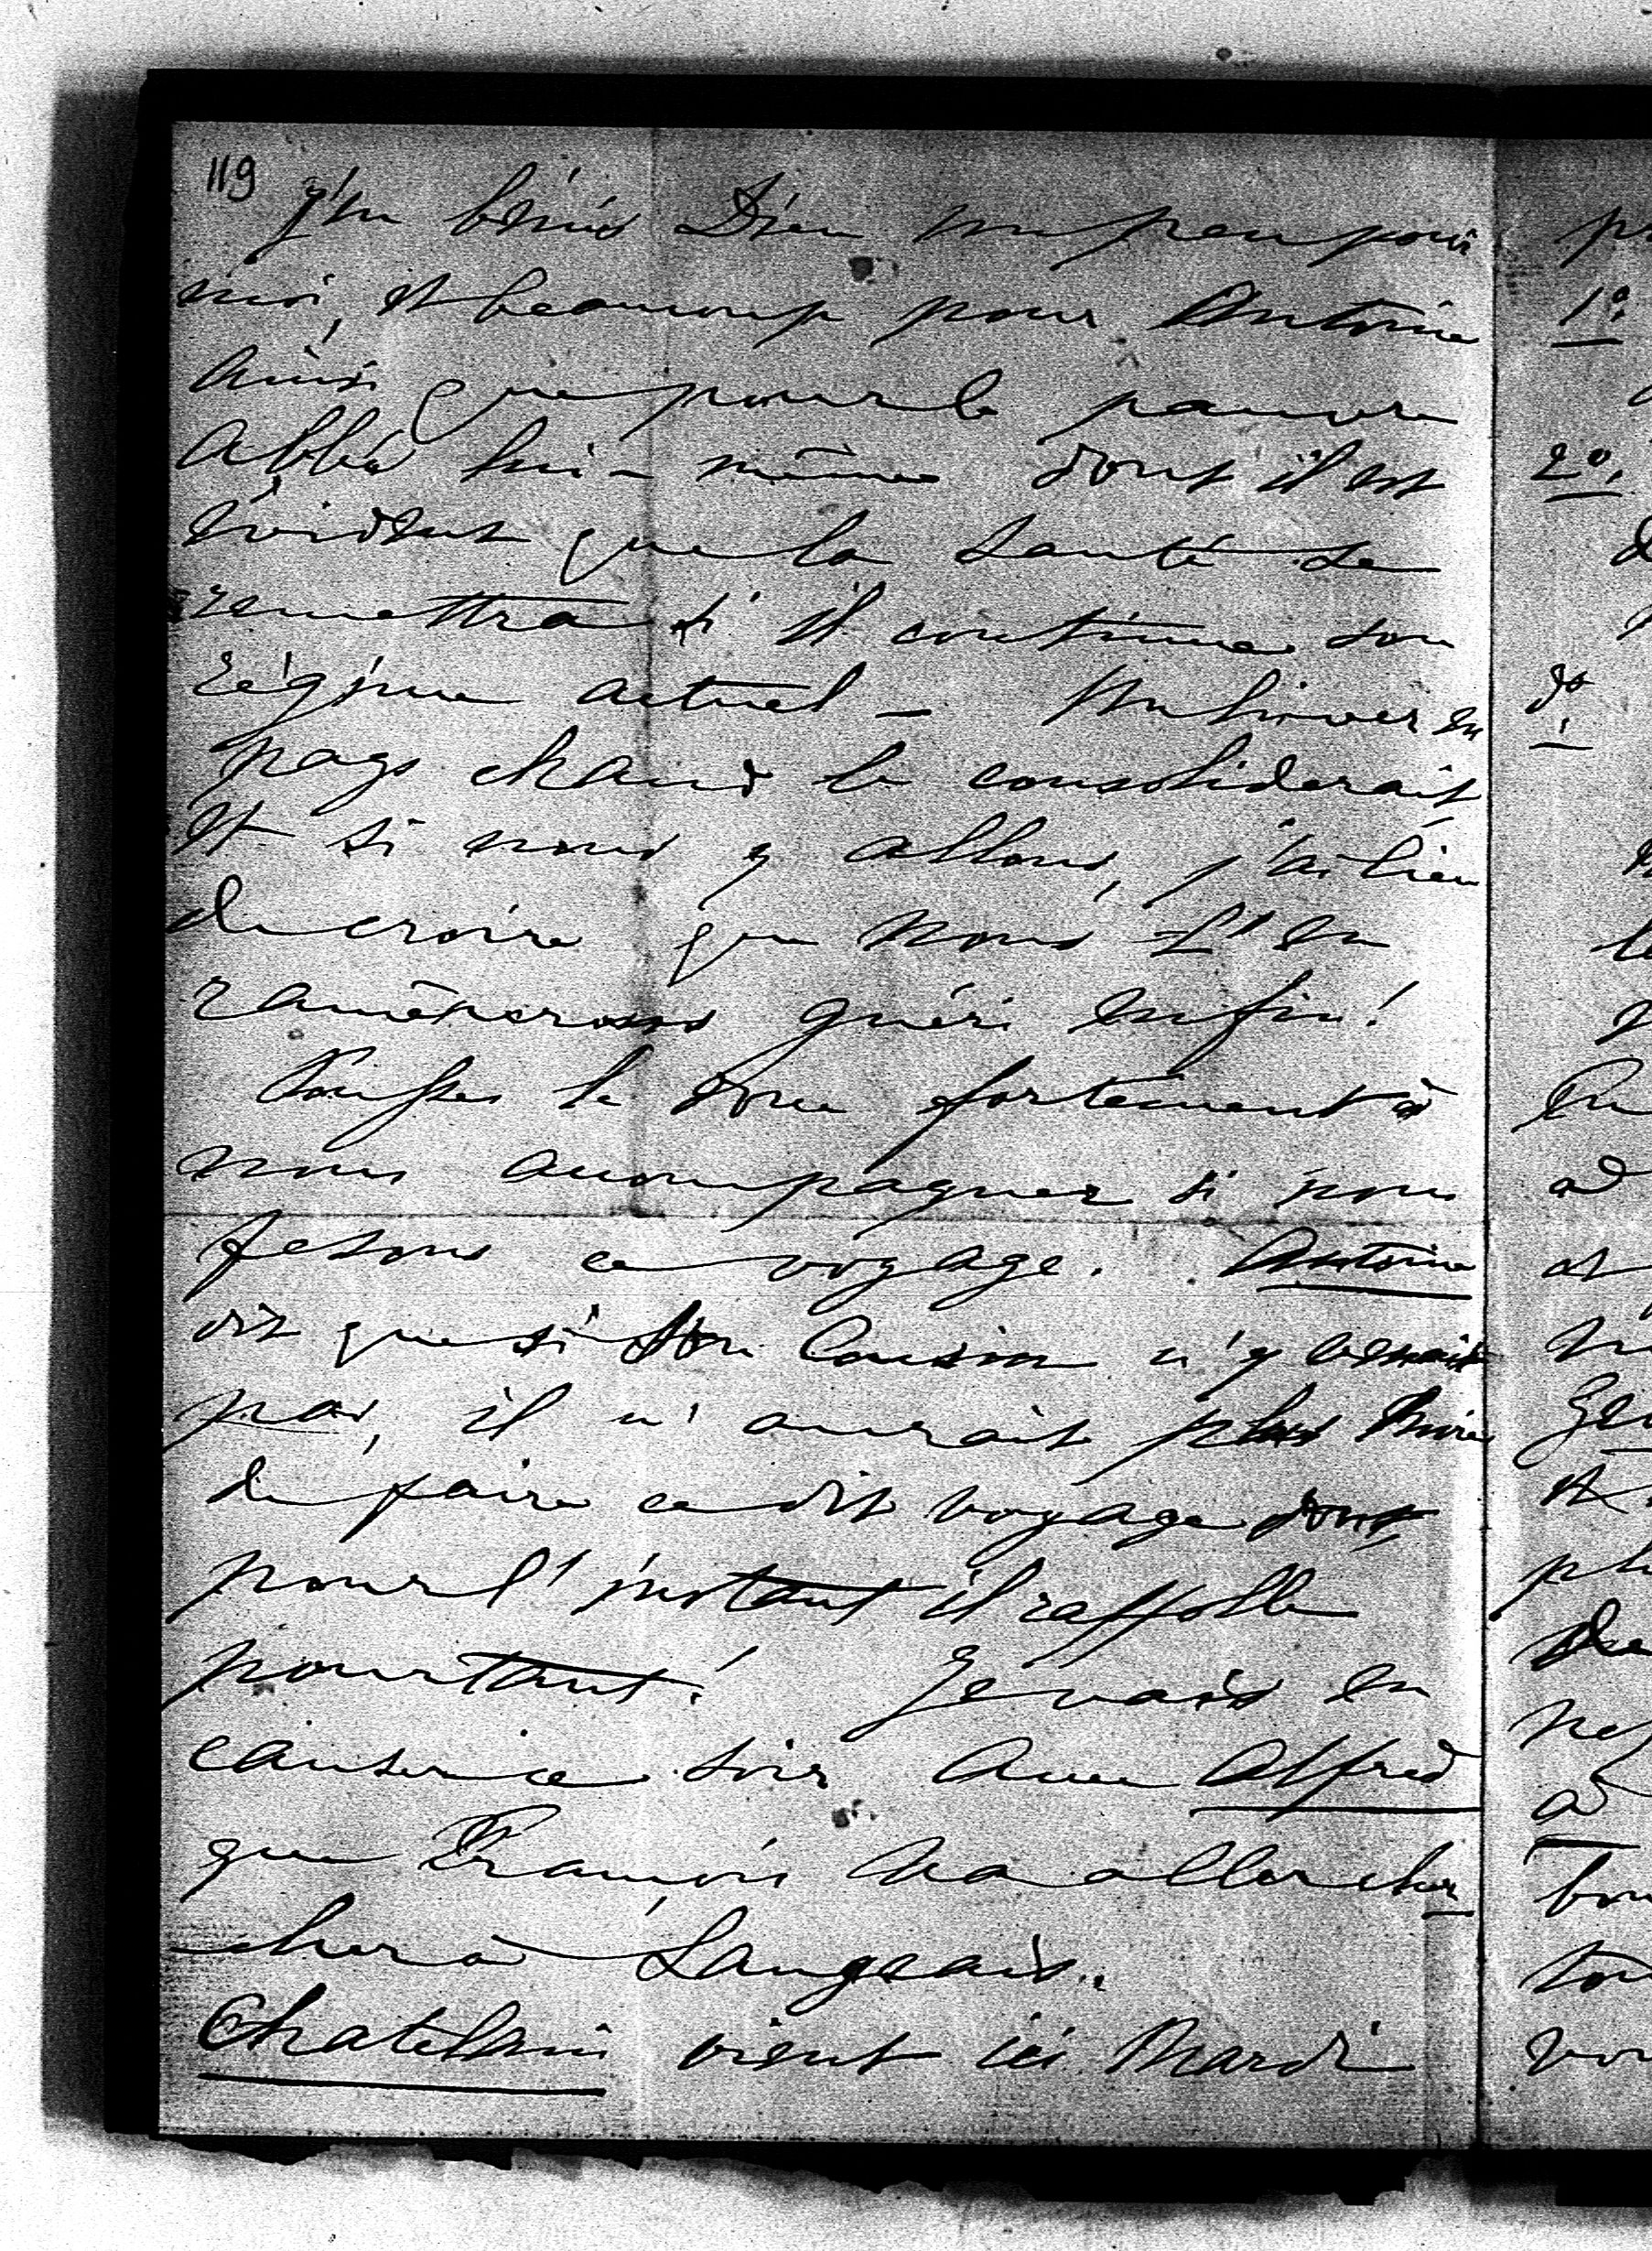 119
j'en bénis Dieu un peu pour
moi, et beaucoup pour Antoine
ainsi que pour le pauvre
abbé lui-même dont il est
évident que la santé se
remettra si il continue son
régime actuel - Un hiver en
pays chaud le consoliderait
et si nous y allons, j'ai lieu
de croire que nous l'en
ramènerons guéri enfin!
Poussez le donc fortement à
nous accompagner si nous
fesons ce voyage. Antoine
dit que si son Cousin n'y venait
pas, il n'aurait plus envie
de faire ce dit voyage dont
pour l'instant il raffolle
pourtant! Je vais en
causer ce soir avec Alfred
que François va aller cher
cher à Langeais.
Chatelain vient ici Mardi
1°.
2°.